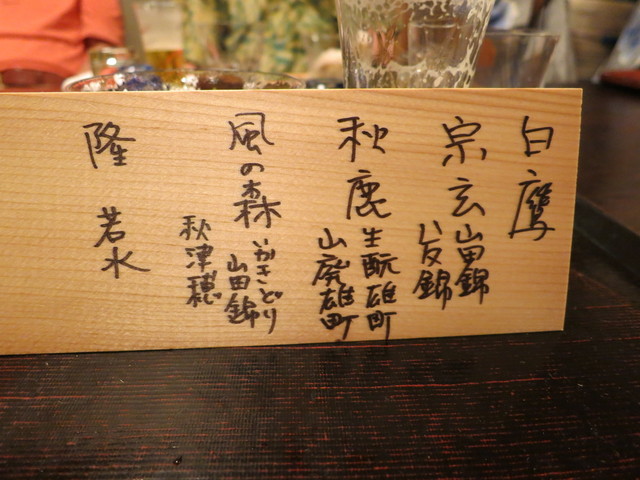 白鷹
宗玄 山田錦
八反錦
秋鹿 生酛雄町
山廃雄町
風の森 いかきとり
山田錦
秋津穂
隆 若水